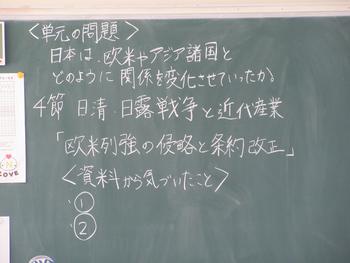 <単元の問題>
日本は、欧米やアジア諸国と
どのように関係を変化させていったか。
4節 日清・日露戦争と近代産業
「欧米列強の侵略と条約改正」
<資料から気づいたこと>
・①
・②
LOVE